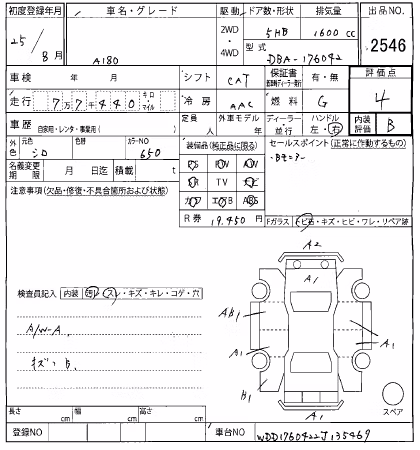 初度登録年月 車名・グレード 駆動 ドア数・形状 排気量 出品NO.
25/8月 A180 2WD・4WD 5HB 1600cc 2546
型式 DBA-176042
車検 年 月 シフト CAT 保証書 有・無 評価点 4
走行 7万7千440 キロ・マイル 冷房 AAC 燃料 G
車歴 自家用・レンタ・事業用( ) 定員 人 外車モデル年 年 ディーラー・並行 ハンドル 左・右 内装評価 B
外色 元色 シロ 色替 カラーNO 650 装備品(純正品に限る) セールスポイント(正常に作動するもの)
名義変更期限 月 日迄 積載 t
・Bモニター
注意事項(欠品・修復・不具合箇所および状態) SR TV ナビ
ABS
R券 19,450円 Fガラス トビ石・キズ・ヒビ・ワレ・リペア跡
A2
A1
検査員記入 内装 ヨゴレ・スレ・キズ・キレ・コゲ・穴
AB1
A/W-A
A1 A1
キズ・B
B1
A1 スペア
長さ cm 幅 cm 高さ cm
登録NO 車台NO WDD1760422J135469